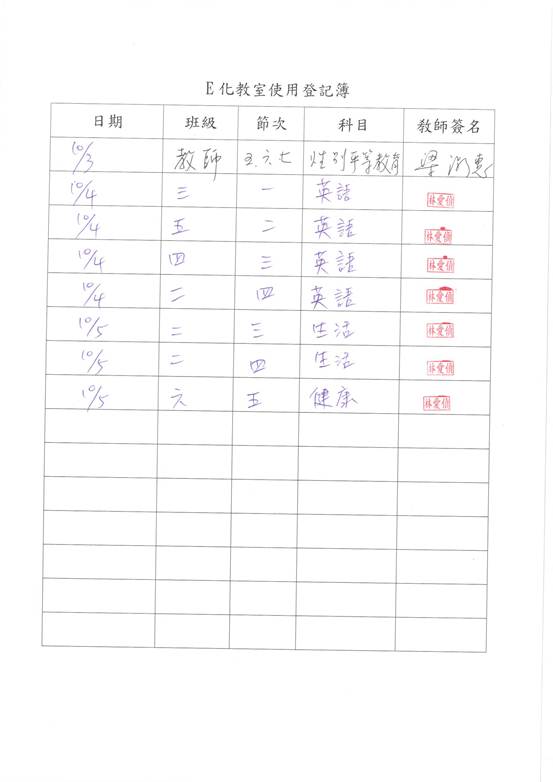 E化教室使用登記簿
日期 班級 節次 科目 教師簽名
10/3 教師 五.六.七 性別平等教育 梁
10/4 三 一 英語 林愛
10/4 五 二 英語 林愛
10/4 四 三 英語 林愛
10/4 二 四 英語 林愛
10/5 二 三 生活 林愛
10/5 二 四 生活 林愛
10/5 六 五 健康 林愛